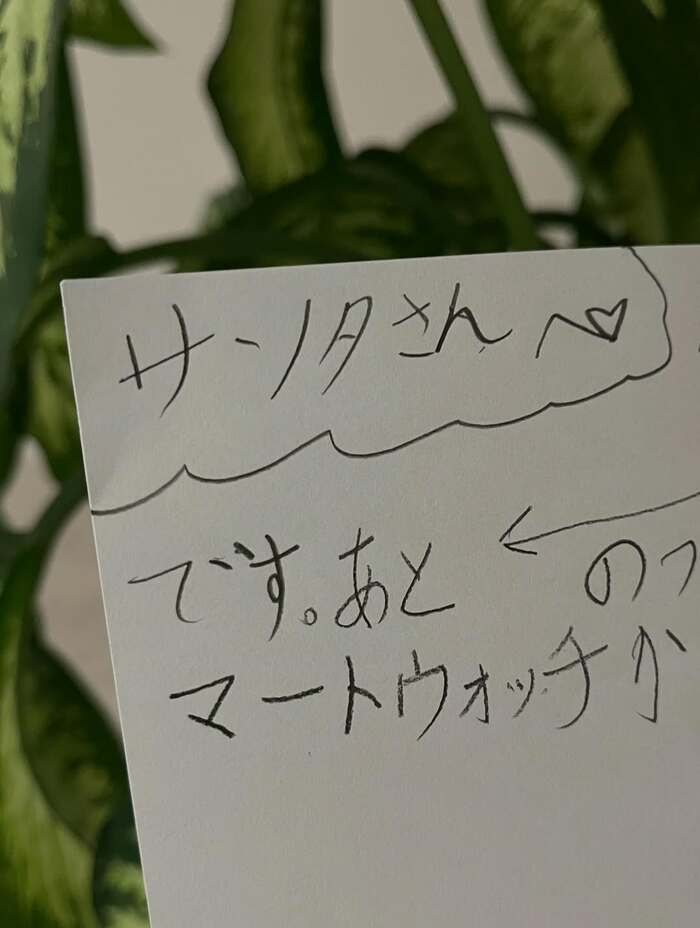 サンタさんへ♡
です。あと ← のっ
マートウォッチか